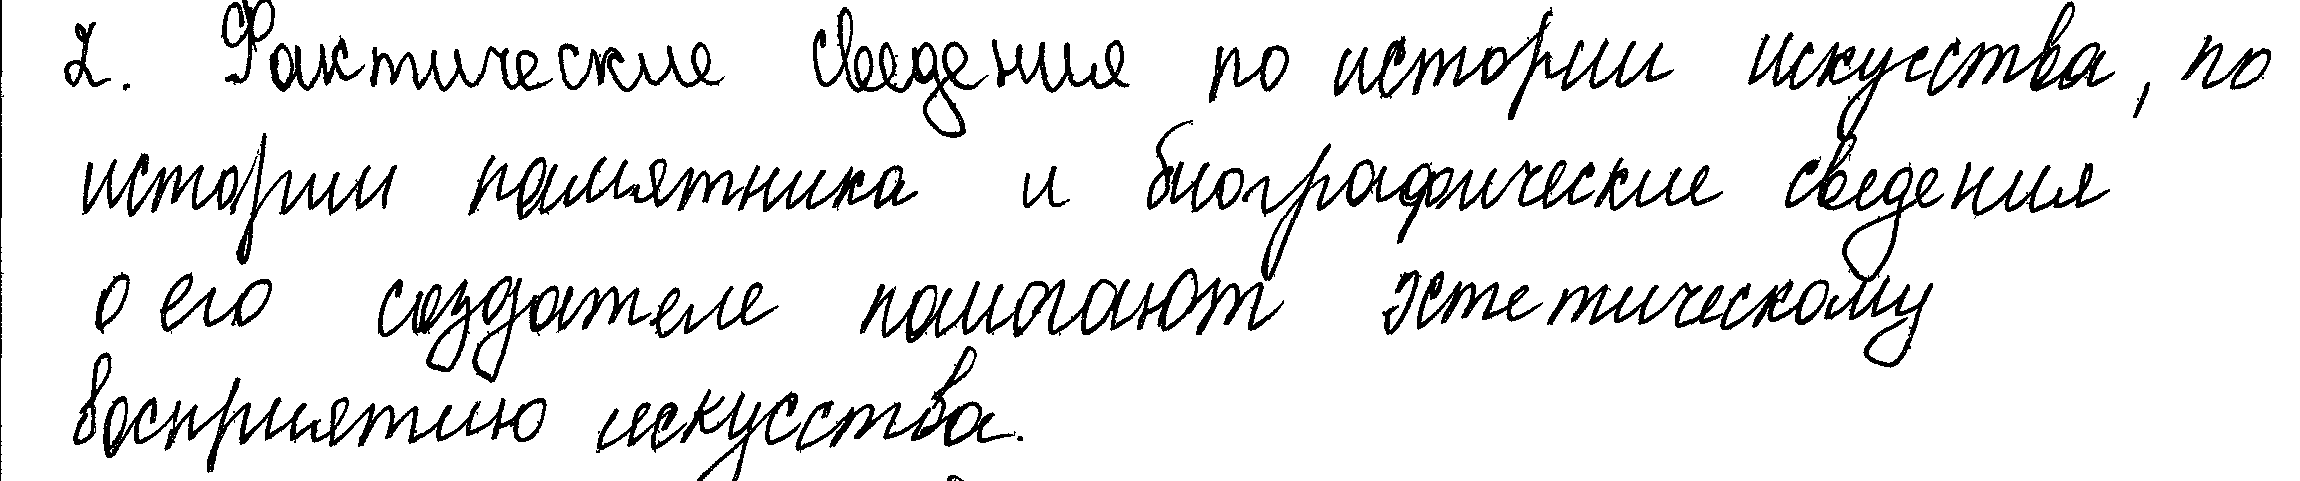 2. Фактические сведения по истории искусства, по
истории памятника и биографические сведения
о его создателе помогают эстетическому
восприятию искусства.